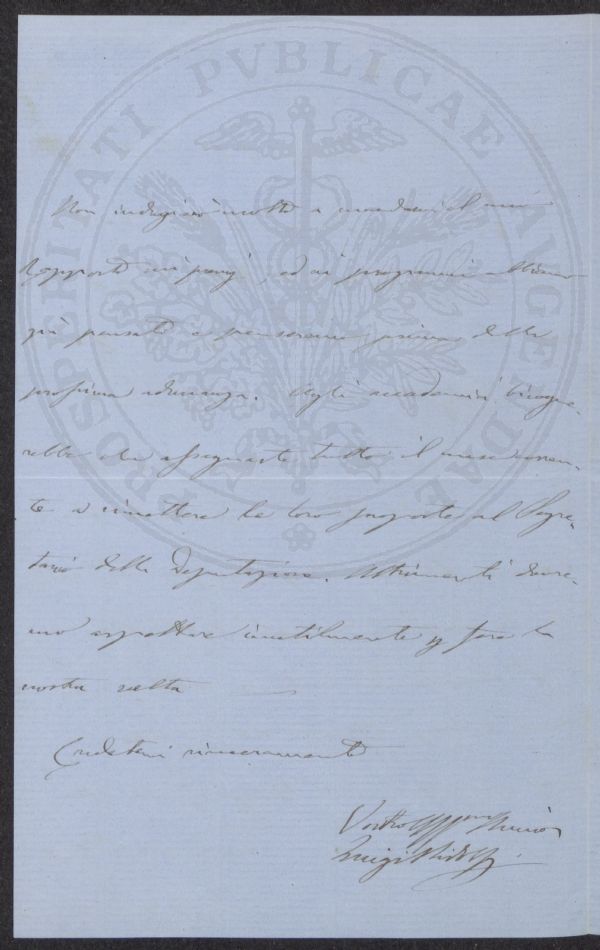 PROSPERITATI PVBLICAE AVGENDAE
Non indugierò molto a mandarvi il mio
Rapporto sui premj, ed ai programmi abbiamo
già pensato e penseremo prima della
prossima adunanza. Agli accademici bisogne-
rebbe che assegnaste tutto il mese corren-
te a rimettere le loro proposte al Segre-
tario della Deputazione. Altrimenti dovre-
mo aspettare inutilmente p fare la
nostra scelta
Credetemi sinceramente
Vostro Affmo Amico
Luigi Ridolfi